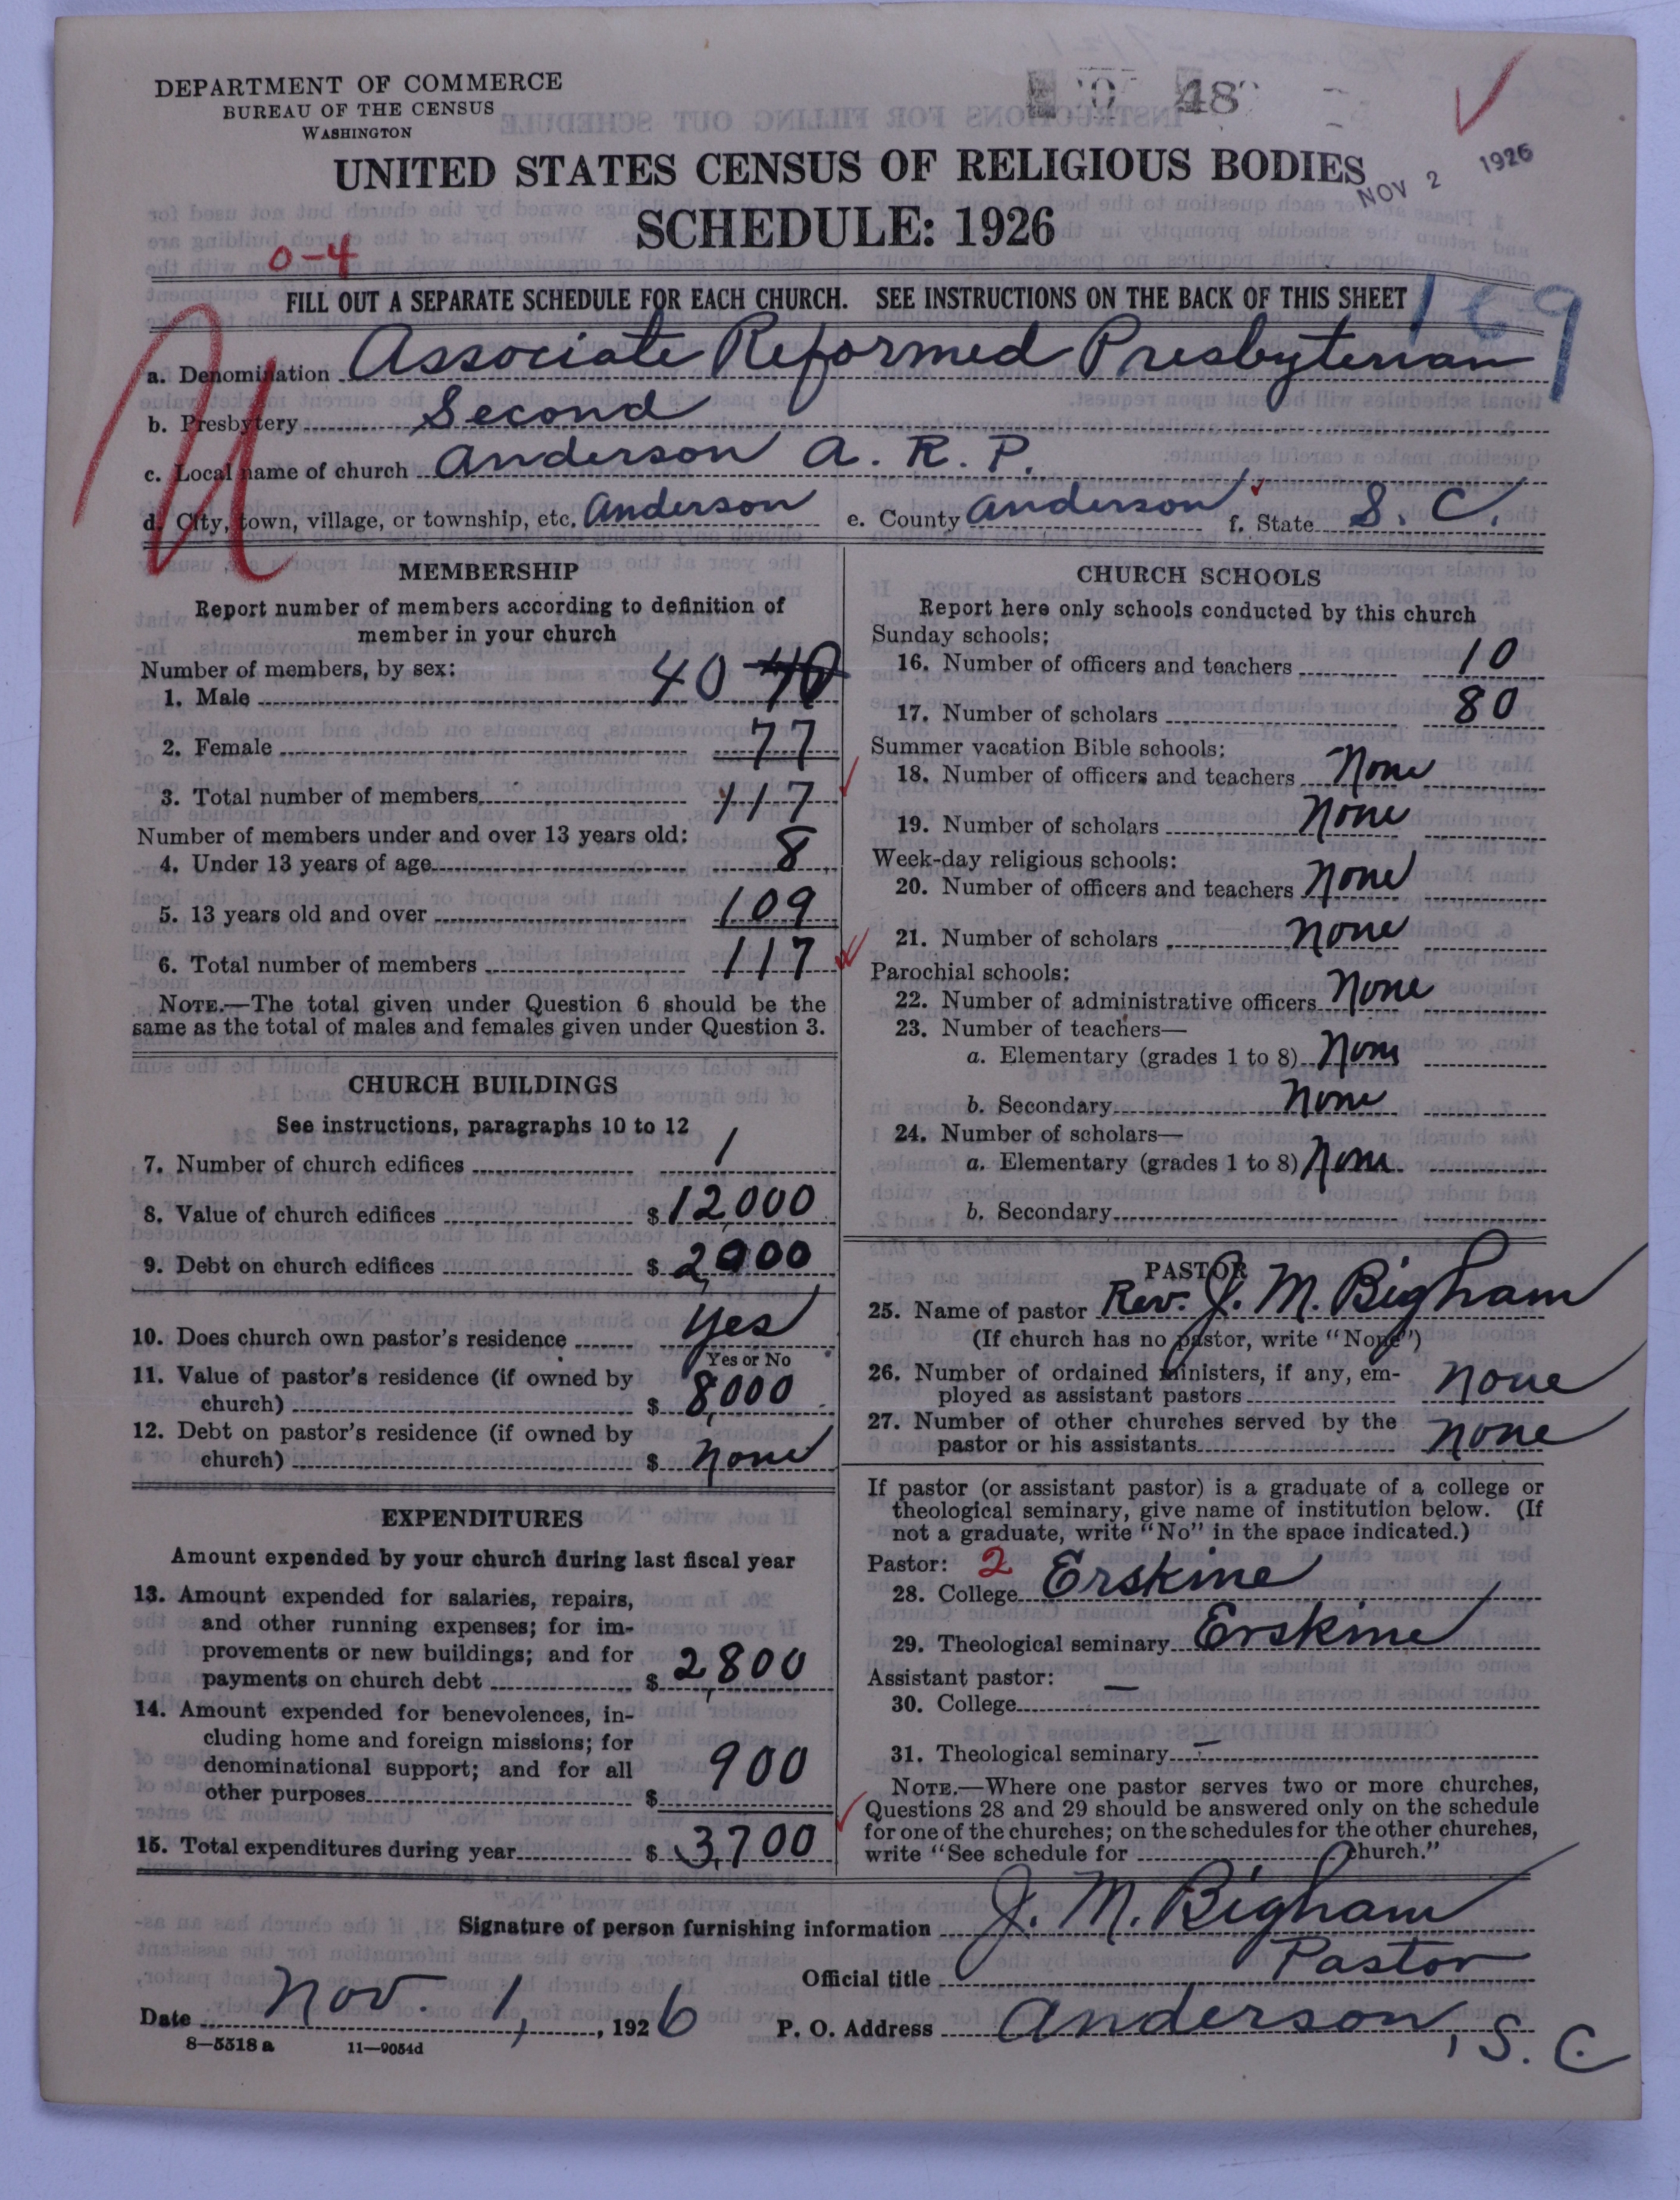 DEPARTMENT OF COMMERCE
BUREAU OF THE CENSUS
WASHINGTON
48
NOV 2 1926
UNITED STATES CENSUS OF RELIGIOUS BODIES
SCHEDULE: 1926
0-4
FILL OUT A SEPARATE SCHEDULE FOR EACH CHURCH. SEE INSTRUCTIONS ON THE BACK OF THIS SHEET
169
a. Denomination Associate Reformed Presbyterian
b. Presbytery Second
c. Local name of church Anderson A. R. P.
d. City, town, village, or township, etc. Anderson e. County Anderson f. State S. C.
MEMBERSHIP
Report number of members according to definition of
member in your church
Number of members, by sex:
1. Male 40 40
2. Female 77
3. Total number of members 117
Number of members under and over 13 years old:
4. Under 13 years of age 8
5. 13 years old and over 109
6. Total number of members 117
NOTE.—The total given under Question 6 should be the
same as the total of males and females given under Question 3.
CHURCH BUILDINGS
See instructions, paragraphs 10 to 12
7. Number of church edifices 1
8. Value of church edifices $ 12,000
9. Debt on church edifices $ 2,000
10. Does church own pastor's residence Yes
Yes or No
11. Value of pastor's residence (if owned by
church) $ 8,000
12. Debt on pastor's residence (if owned by
church) $ None
EXPENDITURES
Amount expended by your church during last fiscal year
13. Amount expended for salaries, repairs,
and other running expenses; for im-
provements or new buildings; and for
payments on church debt $ 2,800
14. Amount expended for benevolences, in-
cluding home and foreign missions; for
denominational support; and for all
other purposes $ 900
15. Total expenditures during year $ 3,700
CHURCH SCHOOLS
Report here only schools conducted by this church
Sunday schools:
16. Number of officers and teachers 10
17. Number of scholars 80
Summer vacation Bible schools:
18. Number of officers and teachers None
19. Number of scholars None
Week-day religious schools:
20. Number of officers and teachers None
21. Number of scholars None
Parochial schools:
22. Number of administrative officers None
23. Number of teachers—
a. Elementary (grades 1 to 8) None
b. Secondary None
24. Number of scholars—
a. Elementary (grades 1 to 8) None
b. Secondary
PASTOR
25. Name of pastor Rev. J. M. Bigham
(If church has no pastor, write "None")
26. Number of ordained ministers, if any, em-
ployed as assistant pastors None
27. Number of other churches served by the
pastor or his assistants None
If pastor (or assistant pastor) is a graduate of a college or
theological seminary, give name of institution below. (If
not a graduate, write "No" in the space indicated.)
Pastor: 2
28. College Erskine
29. Theological seminary Erskine
Assistant pastor: —
30. College
31. Theological seminary —
NOTE.—Where one pastor serves two or more churches,
Questions 28 and 29 should be answered only on the schedule
for one of the churches; on the schedules for the other churches,
write "See schedule for church."
Signature of person furnishing information J. M. Bigham
Official title Pastor
Date Nov. 1, 1926 P. O. Address Anderson, S. C.
8—5518 a 11—9054d